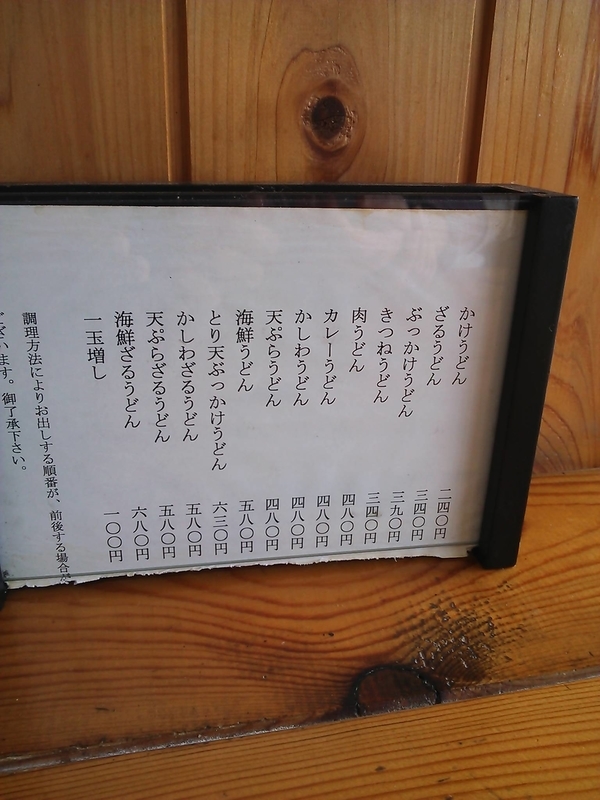 かけうどん 二四〇円
ざるうどん 三四〇円
ぶっかけうどん 三九〇円
きつねうどん 三四〇円
肉うどん 四八〇円
カレーうどん 四八〇円
かしわうどん 四八〇円
天ぷらうどん 四八〇円
海鮮うどん 五八〇円
とり天ぶっかけうどん 六三〇円
かしわざるうどん 五八〇円
天ぷらざるうどん 五八〇円
海鮮ざるうどん 六八〇円
一玉増し 一〇〇円
調理方法によりお出しする順番が、前後する場合が
ございます。御了承下さい。